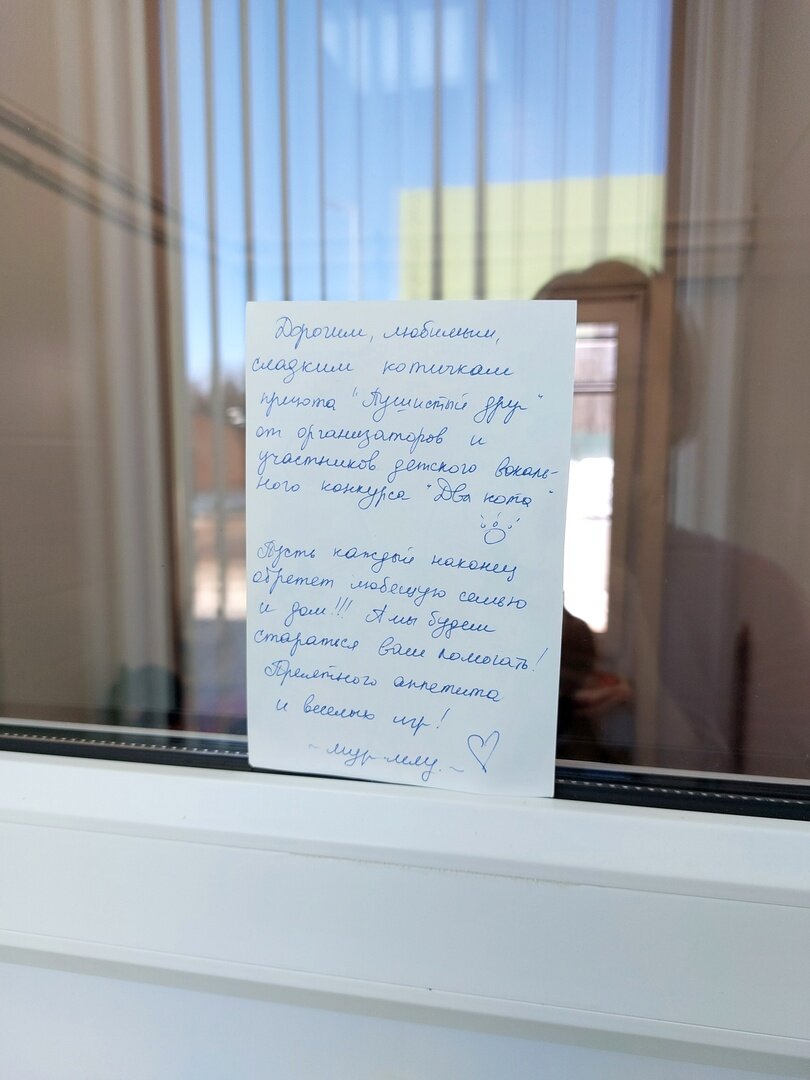 Дорогим, любимым,
сладким котичкам
приюта "Пушистый друг"
от организаторов и
участников детского вокаль-
ного конкурса "Два кота"
Пусть каждый наконец
обретет любящую семью
и дом!!! А мы будем
стараться вам помогать!
Приятного аппетита
и веселых игр!
~ мур-мяу. ~